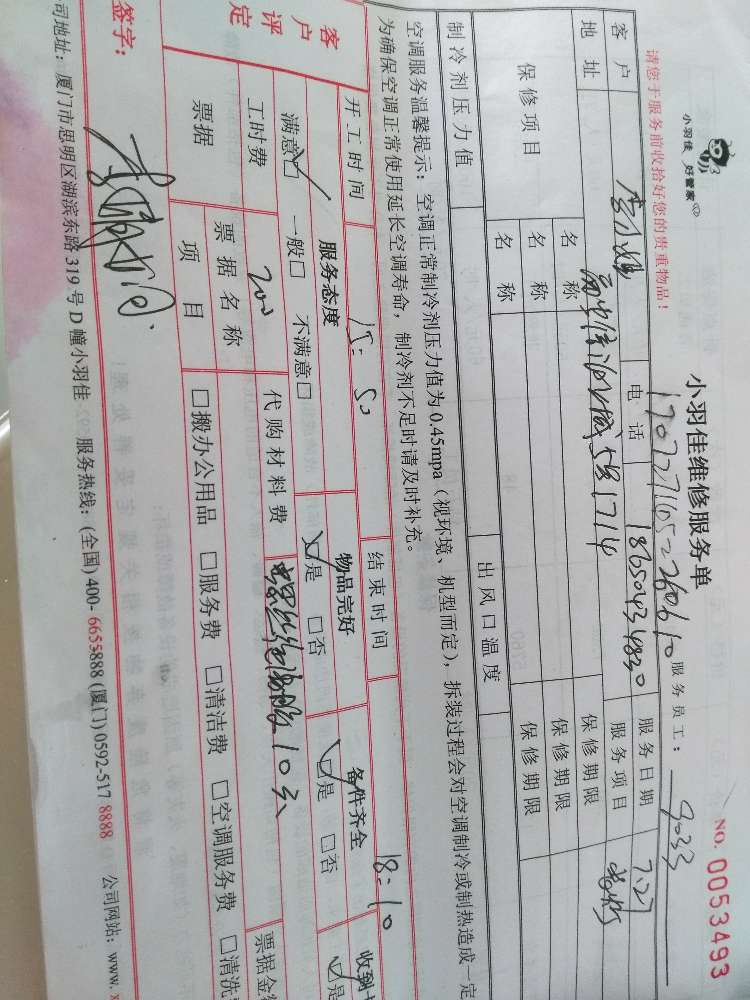 小羽佳 好管家
小羽佳维修服务单
NO. 0053493
请您于服务前收拾好您的贵重物品！
服务员工： 9033
客户
电话 18650434830
服务日期 7.27
地址
581714
服务项目
保修项目
名称
保修期限
名称
保修期限
名称
保修期限
制冷剂压力值
出风口温度
空调服务温馨提示：空调正常制冷剂压力值为0.45mpa（视环境、机型而定），拆装过程会对空调制冷或制热造成一定
为确保空调正常使用延长空调寿命，制冷剂不足时请及时补充。
开工时间 15:50
结束时间 18:10
客户评定
服务态度
物品完好
备件齐全
收到
满意☑ 一般□ 不满意□
☑是 □否
☑是 □否
☑是
工时费 200
代购材料费
10元
票据
票据名称
票据金
项目
□搬办公用品 □服务费 □清洁费 □空调服务费 □清洗
签字：
司地址：厦门市思明区湖滨东路319号D幢小羽佳 服务热线：(全国) 400-6655888 (厦门) 0592-517 8888 公司网站：www.